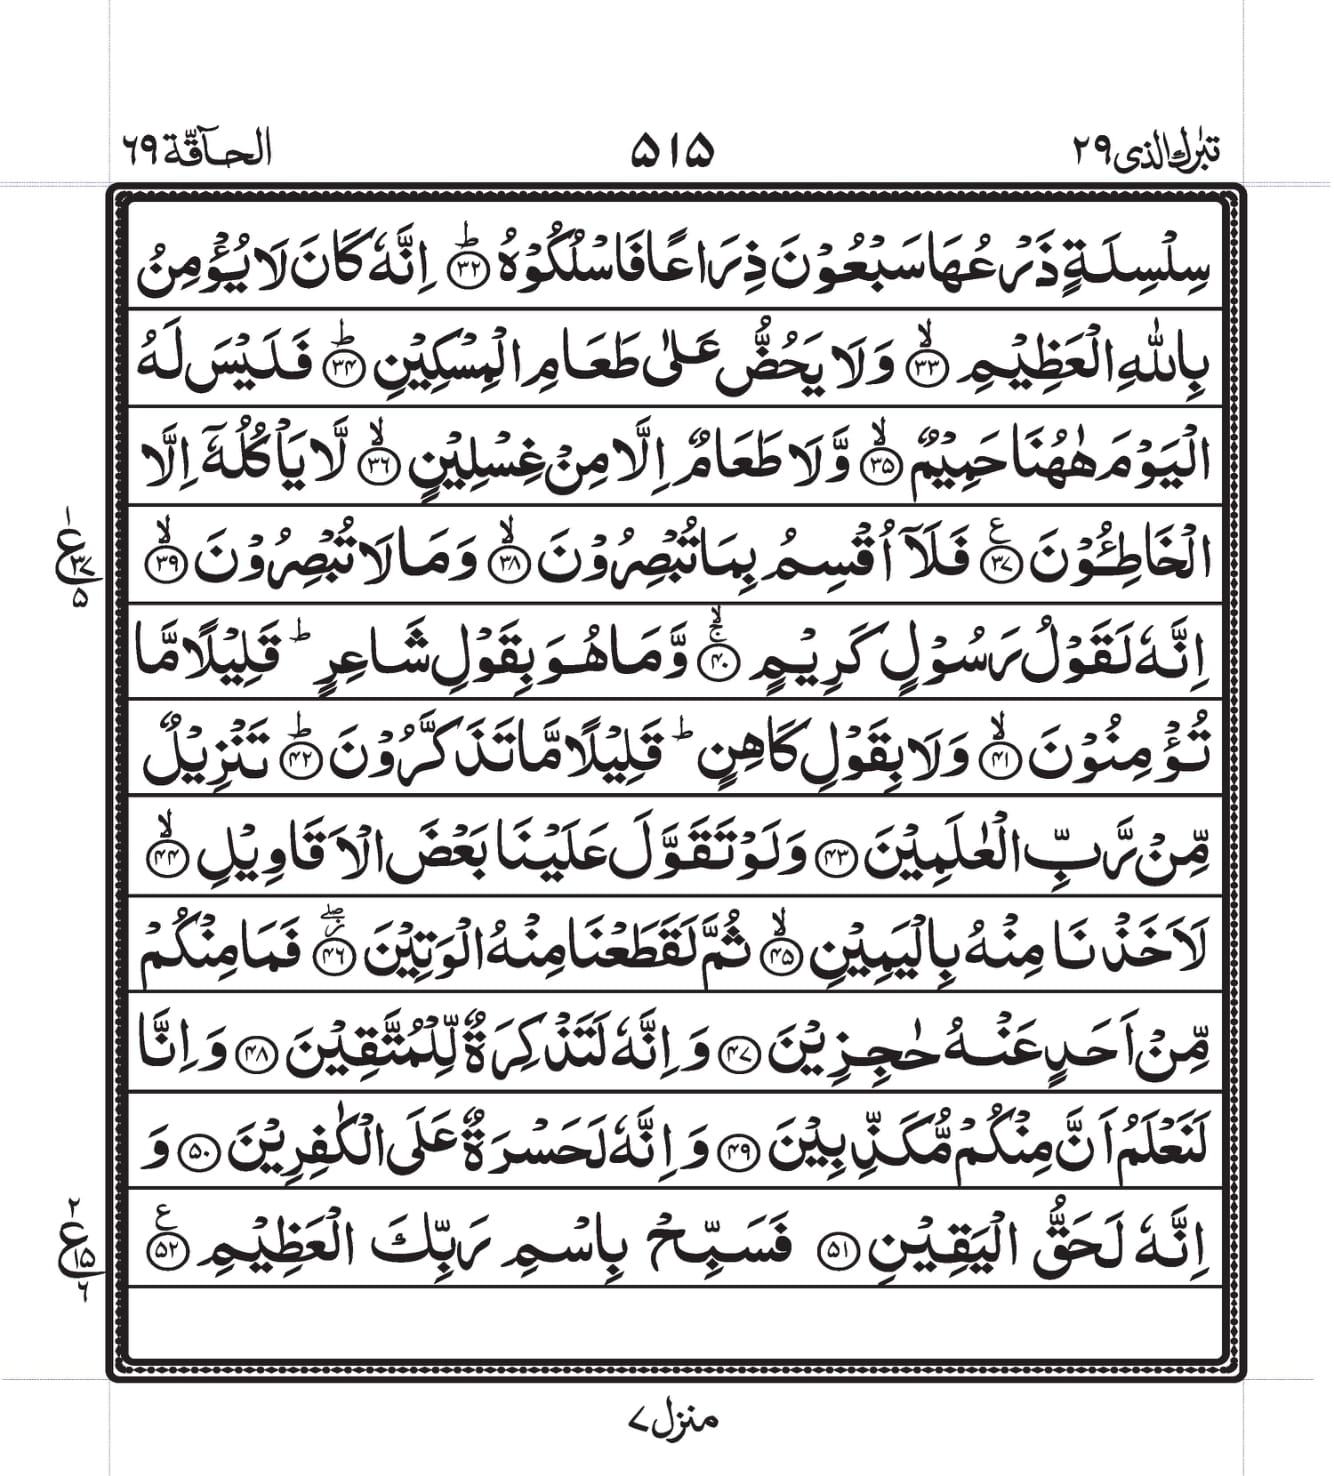 تبٰرك الذی ۲۹
۵۱۵
الحآقّة ۶۹
سِلْسِلَةٍ ذَرْعُهَا سَبْعُوْنَ ذِرَاعًا فَاسْلُكُوْهُ ؕ‏﴿۳۲﴾ اِنَّهٗ كَانَ لَا يُؤْمِنُ
بِاللّٰهِ الْعَظِيْمِ ۙ‏﴿۳۳﴾ وَلَا يَحُضُّ عَلٰى طَعَامِ الْمِسْكِيْنِ ؕ‏﴿۳۴﴾ فَلَيْسَ لَهُ
الْيَوْمَ هٰهُنَا حَمِيْمٌ ۙ‏﴿۳۵﴾ وَّلَا طَعَامٌ اِلَّا مِنْ غِسْلِيْنٍ ۙ‏﴿۳۶﴾ لَّا يَاْكُلُهٗۤ اِلَّا
الْخَاطِـُٔوْنَ ع﴿۳۷﴾ فَلَاۤ اُقْسِمُ بِمَا تُبْصِرُوْنَ ۙ‏﴿۳۸﴾ وَمَا لَا تُبْصِرُوْنَ ۙ‏﴿۳۹﴾
۱
ع
۳۷
۵
اِنَّهٗ لَقَوْلُ رَسُوْلٍ كَرِيْمٍ ۚۙ‏﴿۴۰﴾ وَّمَا هُوَ بِقَوْلِ شَاعِرٍ ؕ قَلِيْلًا مَّا
تُؤْمِنُوْنَ ۙ‏﴿۴۱﴾ وَلَا بِقَوْلِ كَاهِنٍ ؕ قَلِيْلًا مَّا تَذَكَّرُوْنَ ؕ‏﴿۴۲﴾ تَنْزِيْلٌ
مِّنْ رَّبِّ الْعٰلَمِيْنَ ﴿۴۳﴾ وَلَوْ تَقَوَّلَ عَلَيْنَا بَعْضَ الْاَقَاوِيْلِ ۙ‏﴿۴۴﴾
لَاَخَذْنَا مِنْهُ بِالْيَمِيْنِ ۙ‏﴿۴۵﴾ ثُمَّ لَقَطَعْنَا مِنْهُ الْوَتِيْنَ ۖ‏﴿۴۶﴾ فَمَا مِنْكُمْ
مِّنْ اَحَدٍ عَنْهُ حٰجِزِيْنَ ﴿۴۷﴾ وَاِنَّهٗ لَتَذْكِرَةٌ لِّلْمُتَّقِيْنَ ﴿۴۸﴾ وَاِنَّا
لَنَعْلَمُ اَنَّ مِنْكُمْ مُّكَذِّبِيْنَ ﴿۴۹﴾ وَاِنَّهٗ لَحَسْرَةٌ عَلَى الْكٰفِرِيْنَ ﴿۵۰﴾ وَ
اِنَّهٗ لَحَقُّ الْيَقِيْنِ ﴿۵۱﴾ فَسَبِّحْ بِاسْمِ رَبِّكَ الْعَظِيْمِ ع﴿۵۲﴾
۲
ع
۱۵
۶
منزل ۷